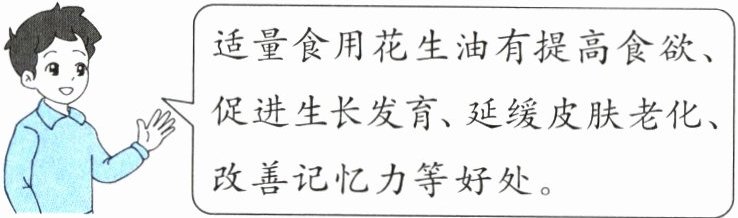 适量食用花生油有提高食欲、
促进生长发育、延缓皮肤老化、
改善记忆力等好处。